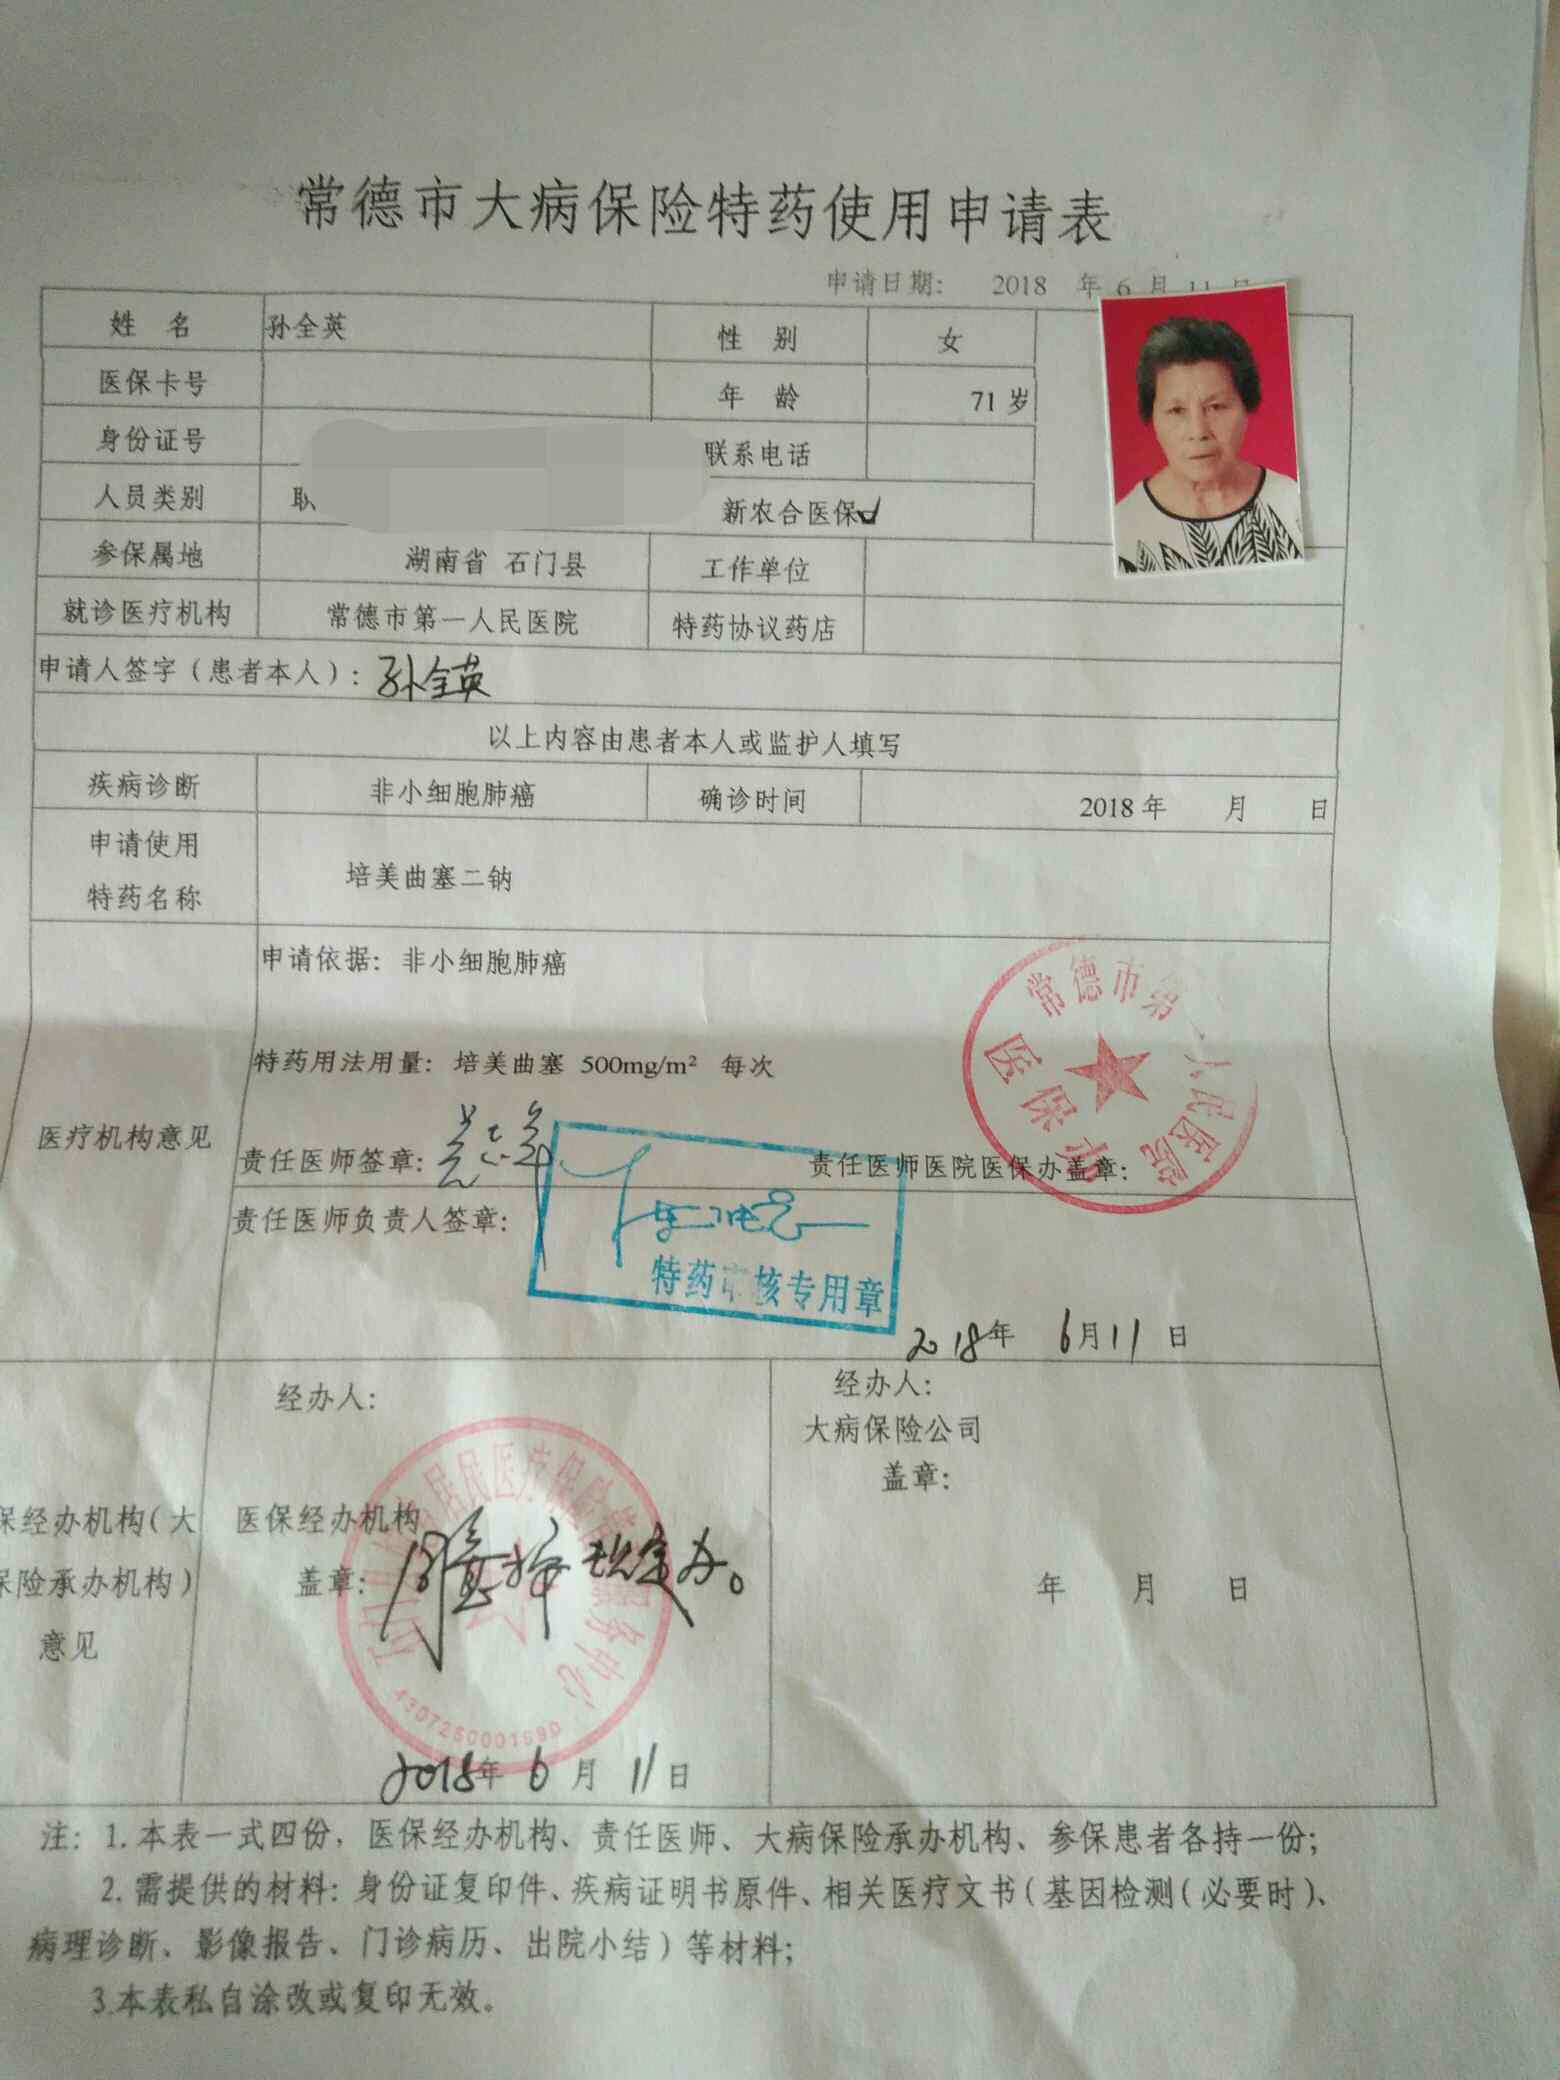 常德市大病保险特药使用申请表
申请日期： 2018 年 6 月 11 日
姓 名 孙全英 性 别 女
医保卡号 年 龄 71 岁
身份证号 联系电话
人员类别 职 新农合医保
参保属地 湖南省 石门县 工作单位
就诊医疗机构 常德市第一人民医院 特药协议药店
申请人签字（患者本人）：孙全英
以上内容由患者本人或监护人填写
疾病诊断 非小细胞肺癌 确诊时间 2018 年 月 日
申请使用
特药名称
培美曲塞二钠
申请依据：非小细胞肺癌
常德市第一人民医院
医保办
特药用法用量：培美曲塞 500mg/m² 每次
医疗机构意见
责任医师签章：
责任医师医院医保办盖章：
责任医师负责人签章：
特药审核专用章
2018年 6月11 日
经办人：
经办人：
大病保险公司
盖章：
保经办机构（大
保险承办机构）
意见
医保经办机构
盖章：
居民医疗保险 服务中心
4307250001690
年 月 日
2018年 6 月 11 日
注：1.本表一式四份，医保经办机构、责任医师、大病保险承办机构、参保患者各持一份；
2.需提供的材料：身份证复印件、疾病证明书原件、相关医疗文书（基因检测（必要时）、
病理诊断、影像报告、门诊病历、出院小结）等材料；
3.本表私自涂改或复印无效。